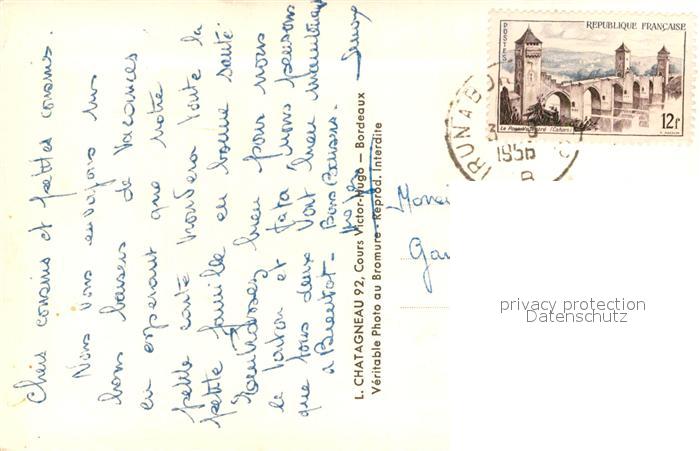 Chers cousins et petites cousines.
Nous vous envoyons nos
bons baisers de vacances
en esperant que notre
petite carte trouvera toute la
petite famille en bonne santé.
Embrassez bien pour nous
le tonton et tata nous pensons
que tous deux vont bien maintenant
a Bientot - Bons Baisers.
L. CHATAGNEAU 92, Cours Victor-Hugo — Bordeaux
Véritable Photo au Bromure - Reprod. Interdite
REPUBLIQUE FRANÇAISE
POSTES
Le Pont Valentré (Cahors)
12f
1956
privacy protection
Datenschutz